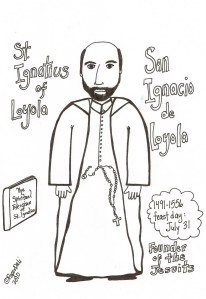 St.
Ignatius
of
Loyola
San
Ignacio
de
Loyola
The
Spiritual
Exercises
St. Ignatius
1491-1556
feast day:
July 31
Founder
of the
Jesuits